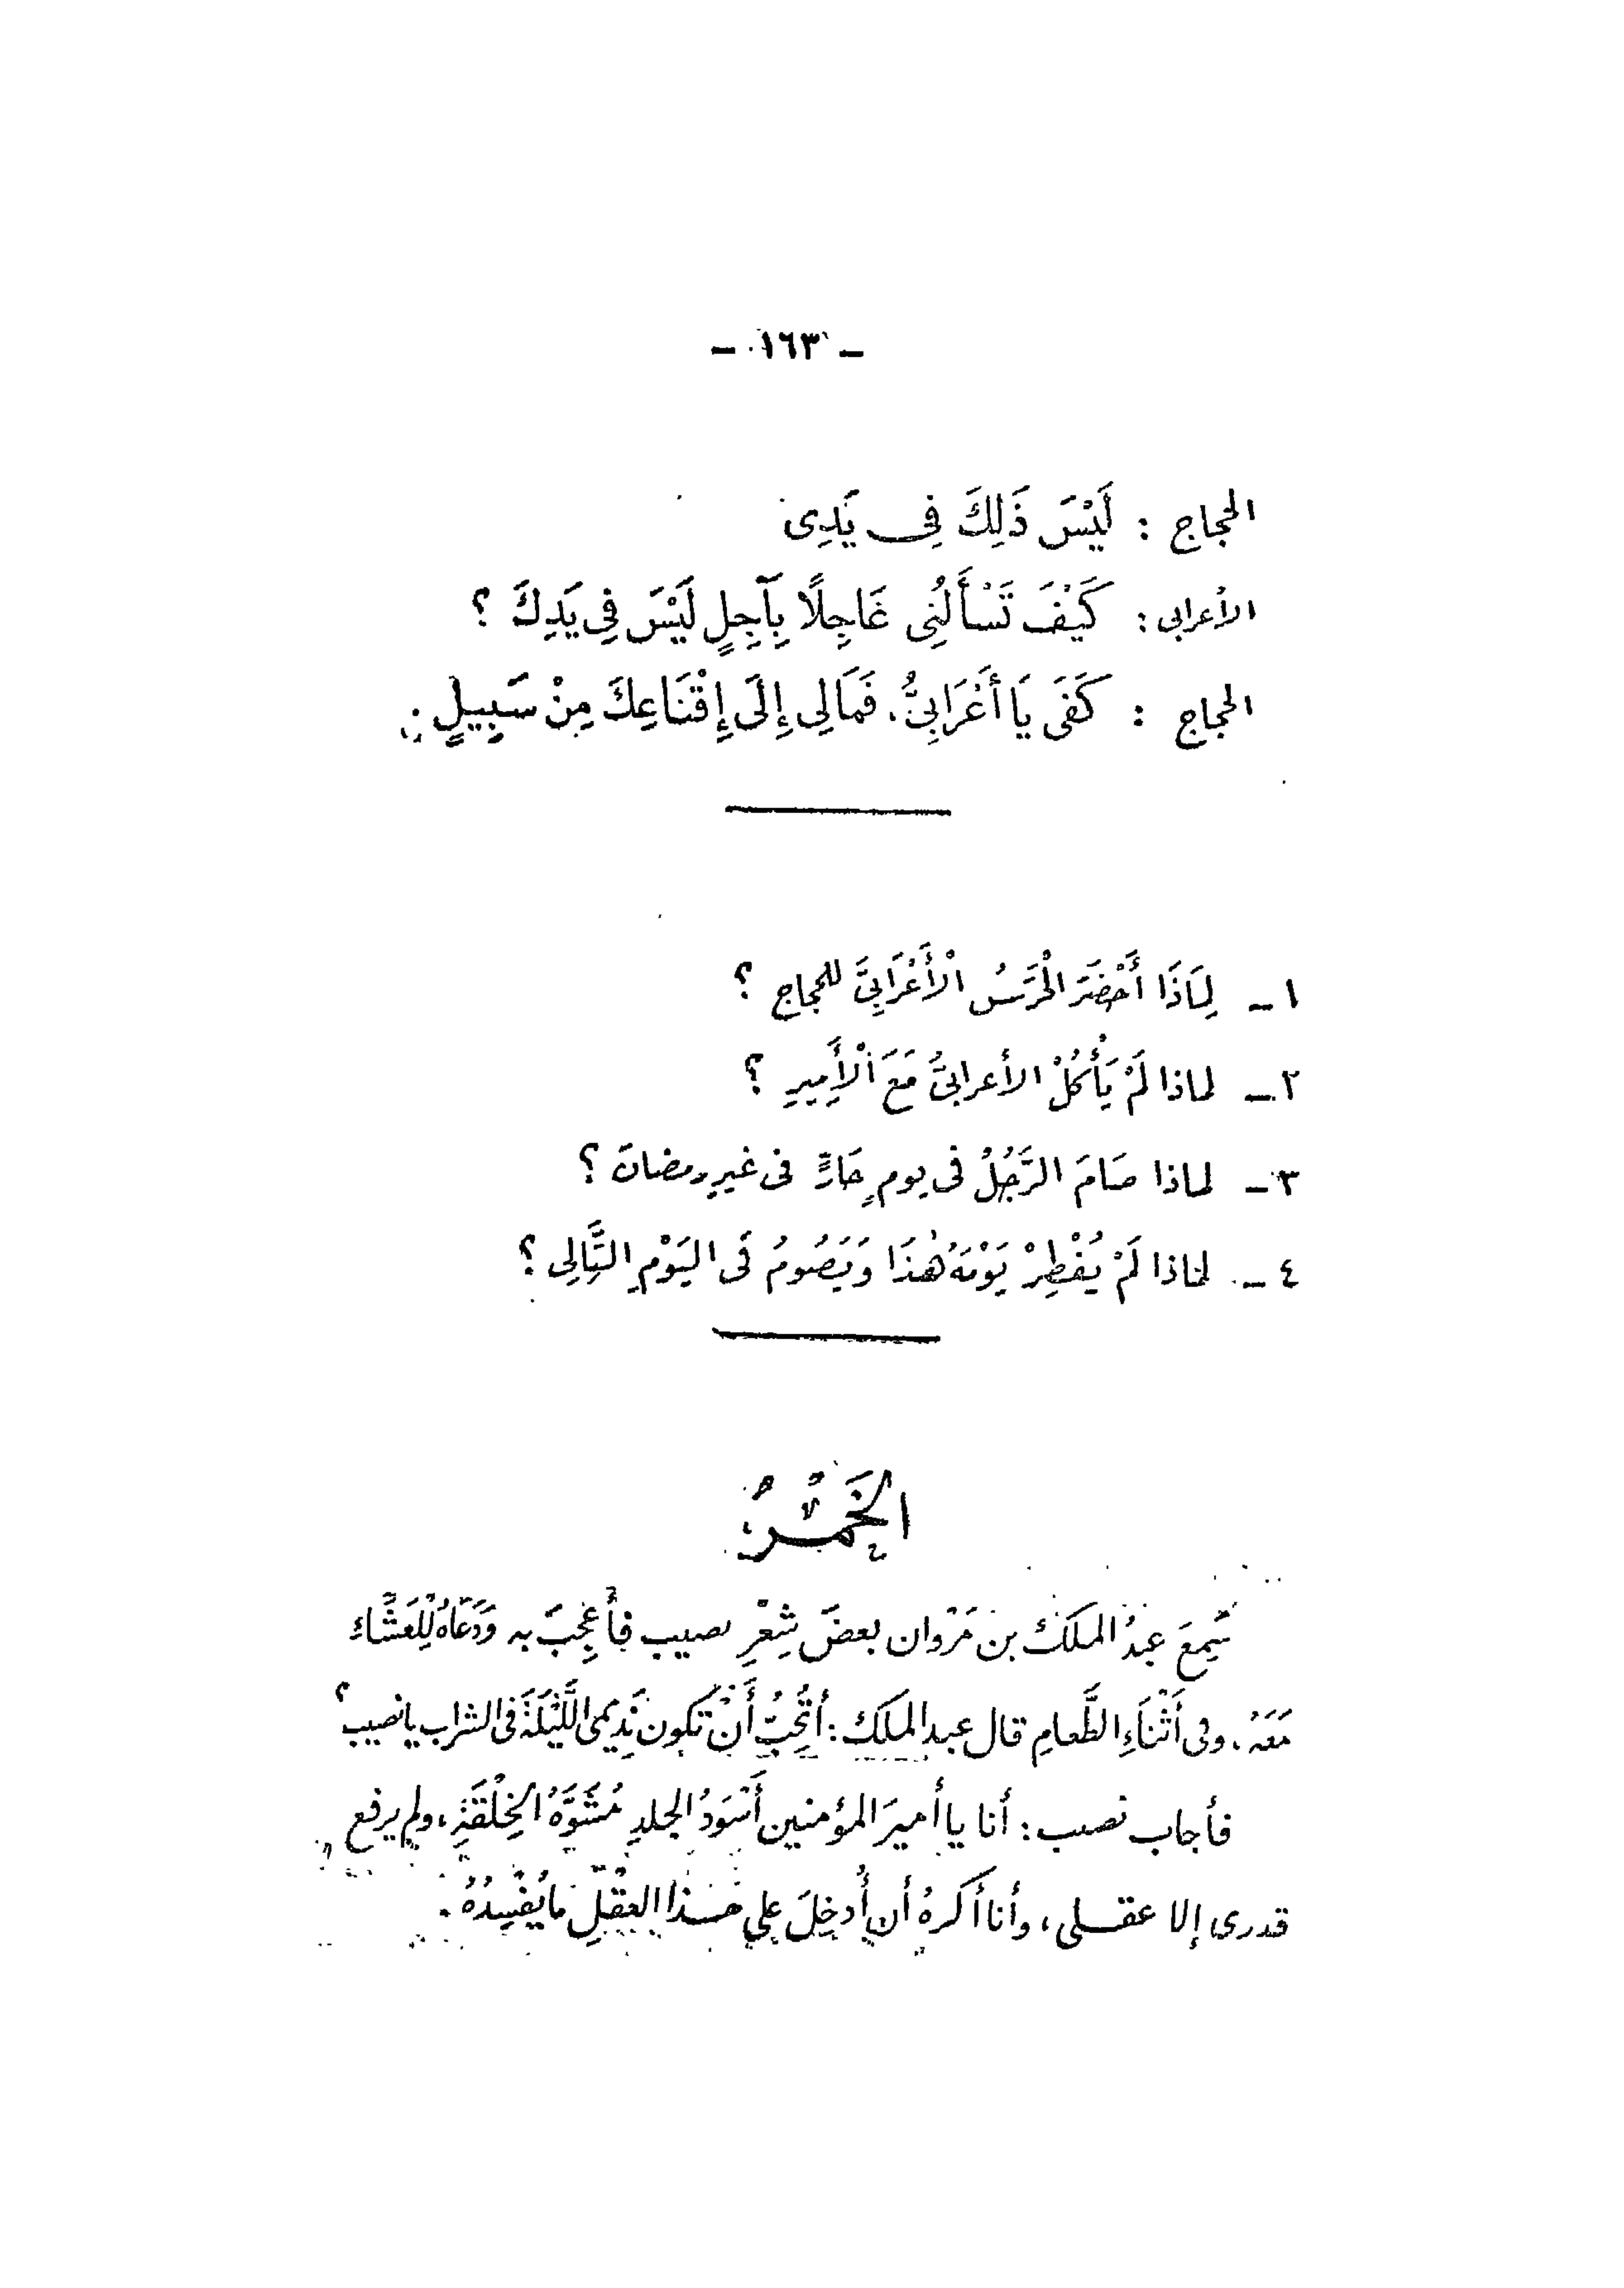 – ١٦٣ –
الحجاج : لَيْسَ ذَلِكَ فِى يَدِى
الأعرابى : كَيْفَ تَسْأَلُنِى عَاجِلًا بِآجِلٍ لَيْسَ فِى يَدِكَ ؟
الحجاج : كَفَى يَا أَعْرَابِىُّ . فَمَالِى إِلَى إِقْنَاعِكَ مِنْ سَبِيلٍ .
١ – لِمَاذَا أَحْضَرَ الْحَرَسُ الْأَعْرَابِىَّ للحجاج ؟
٢ – لماذا لَمْ يَأْكُلْ الأعرابىُّ مَعَ الْأَمِيرِ ؟
٣ – لماذا صَامَ الرَّجُلُ فى يومٍ حَارٍّ فى غيرِ رمضانَ ؟
٤ – لماذا لَمْ يُفْطِرْ يَوْمَهُ هَٰذَا وَيَصُومُ فَى اليَوْمِ التَّالِى ؟
الخَمْرُ
سَمِعَ عبدُ الملَكَ بن مَرْوان بعضَ شِعْرِ نصيب فأُعْجِبَ به وَدَعَاهُ لِلْعَشَاءِ
مَعَهُ . وفى أَثْنَاءِ الطَّعامِ قال عبد الملَك : أتُحِبُّ أَنْ تَكون نَدِيمى اللَّيْلَةَ فى الشراب يا نصيب ؟
فأجاب نصيب : أنا يا أميرَ المؤمنين أَسْوَدُ الجلدِ مُشَوَّهُ الخِلْقَةِ ، ولم يرفع
قدرى إلا عقلى ، وأنا أكرهُ أن أُدخِلَ على هذا العقْلِ ما يُفْسِدُهُ .